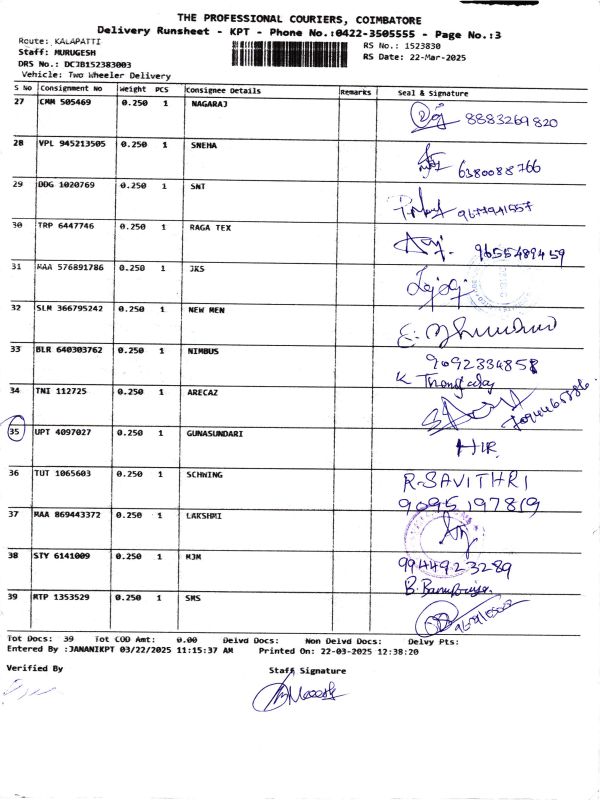 THE PROFESSIONAL COURIERS, COIMBATORE
Delivery Runsheet - KPT - Phone No.:0422-3505555 - Page No.:3
Route: KALAPATTI
RS No.: 1523830
Staff: MURUGESH
RS Date: 22-Mar-2025
DRS No.: DCJB152383003
Vehicle: Two Wheeler Delivery
S No Consignment No Weight PCS Consignee Details Remarks Seal & Signature
27 CMM 505469 0.250 1 NAGARAJ 8883269820
28 VPL 945213505 0.250 1 SNEHA 6380088766
29 DDG 1020769 0.250 1 SNT
30 TRP 6447746 0.250 1 RAGA TEX 9655489459
31 MAA 576891786 0.250 1 JKS
32 SLM 366795242 0.250 1 NEW MEN
33 BLR 640303762 0.250 1 NIMBUS 9092334858
34 TNI 112725 0.250 1 ARECAZ
35 UPT 4097027 0.250 1 GUNASUNDARI
36 TUT 1065603 0.250 1 SCHWING R. SAVITHRI
9095197819
37 MAA 869443372 0.250 1 LAKSHMI
38 STY 6141009 0.250 1 MJM 9944923289
39 RTP 1353529 0.250 1 SMS
Tot Docs: 39 Tot COD Amt: 0.00 Delvd Docs: Non Delvd Docs: Delvy Pts:
Entered By :JANANIKPT 03/22/2025 11:15:37 AM Printed On: 22-03-2025 12:38:20
Verified By
Staff Signature